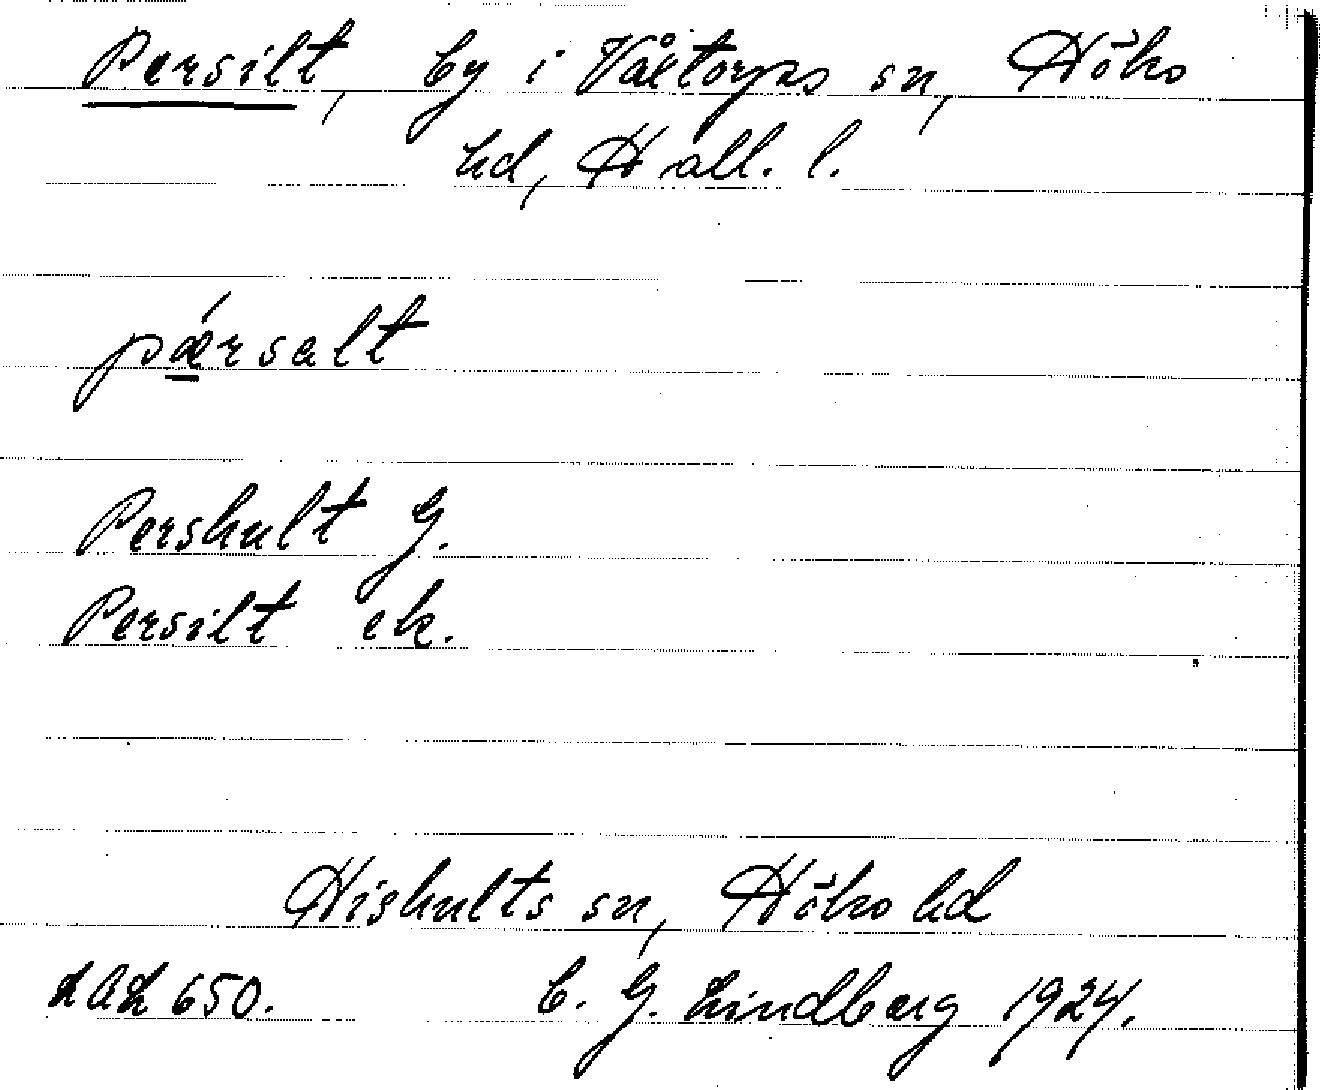 Persilt, by i Våxtorps sn, Höks
hd, Hall. l.
pǽrsalt
Pershult G.
Persilt ek.
Hishults sn, Höks hd
LAL 650. C. G. Lindberg 1924.